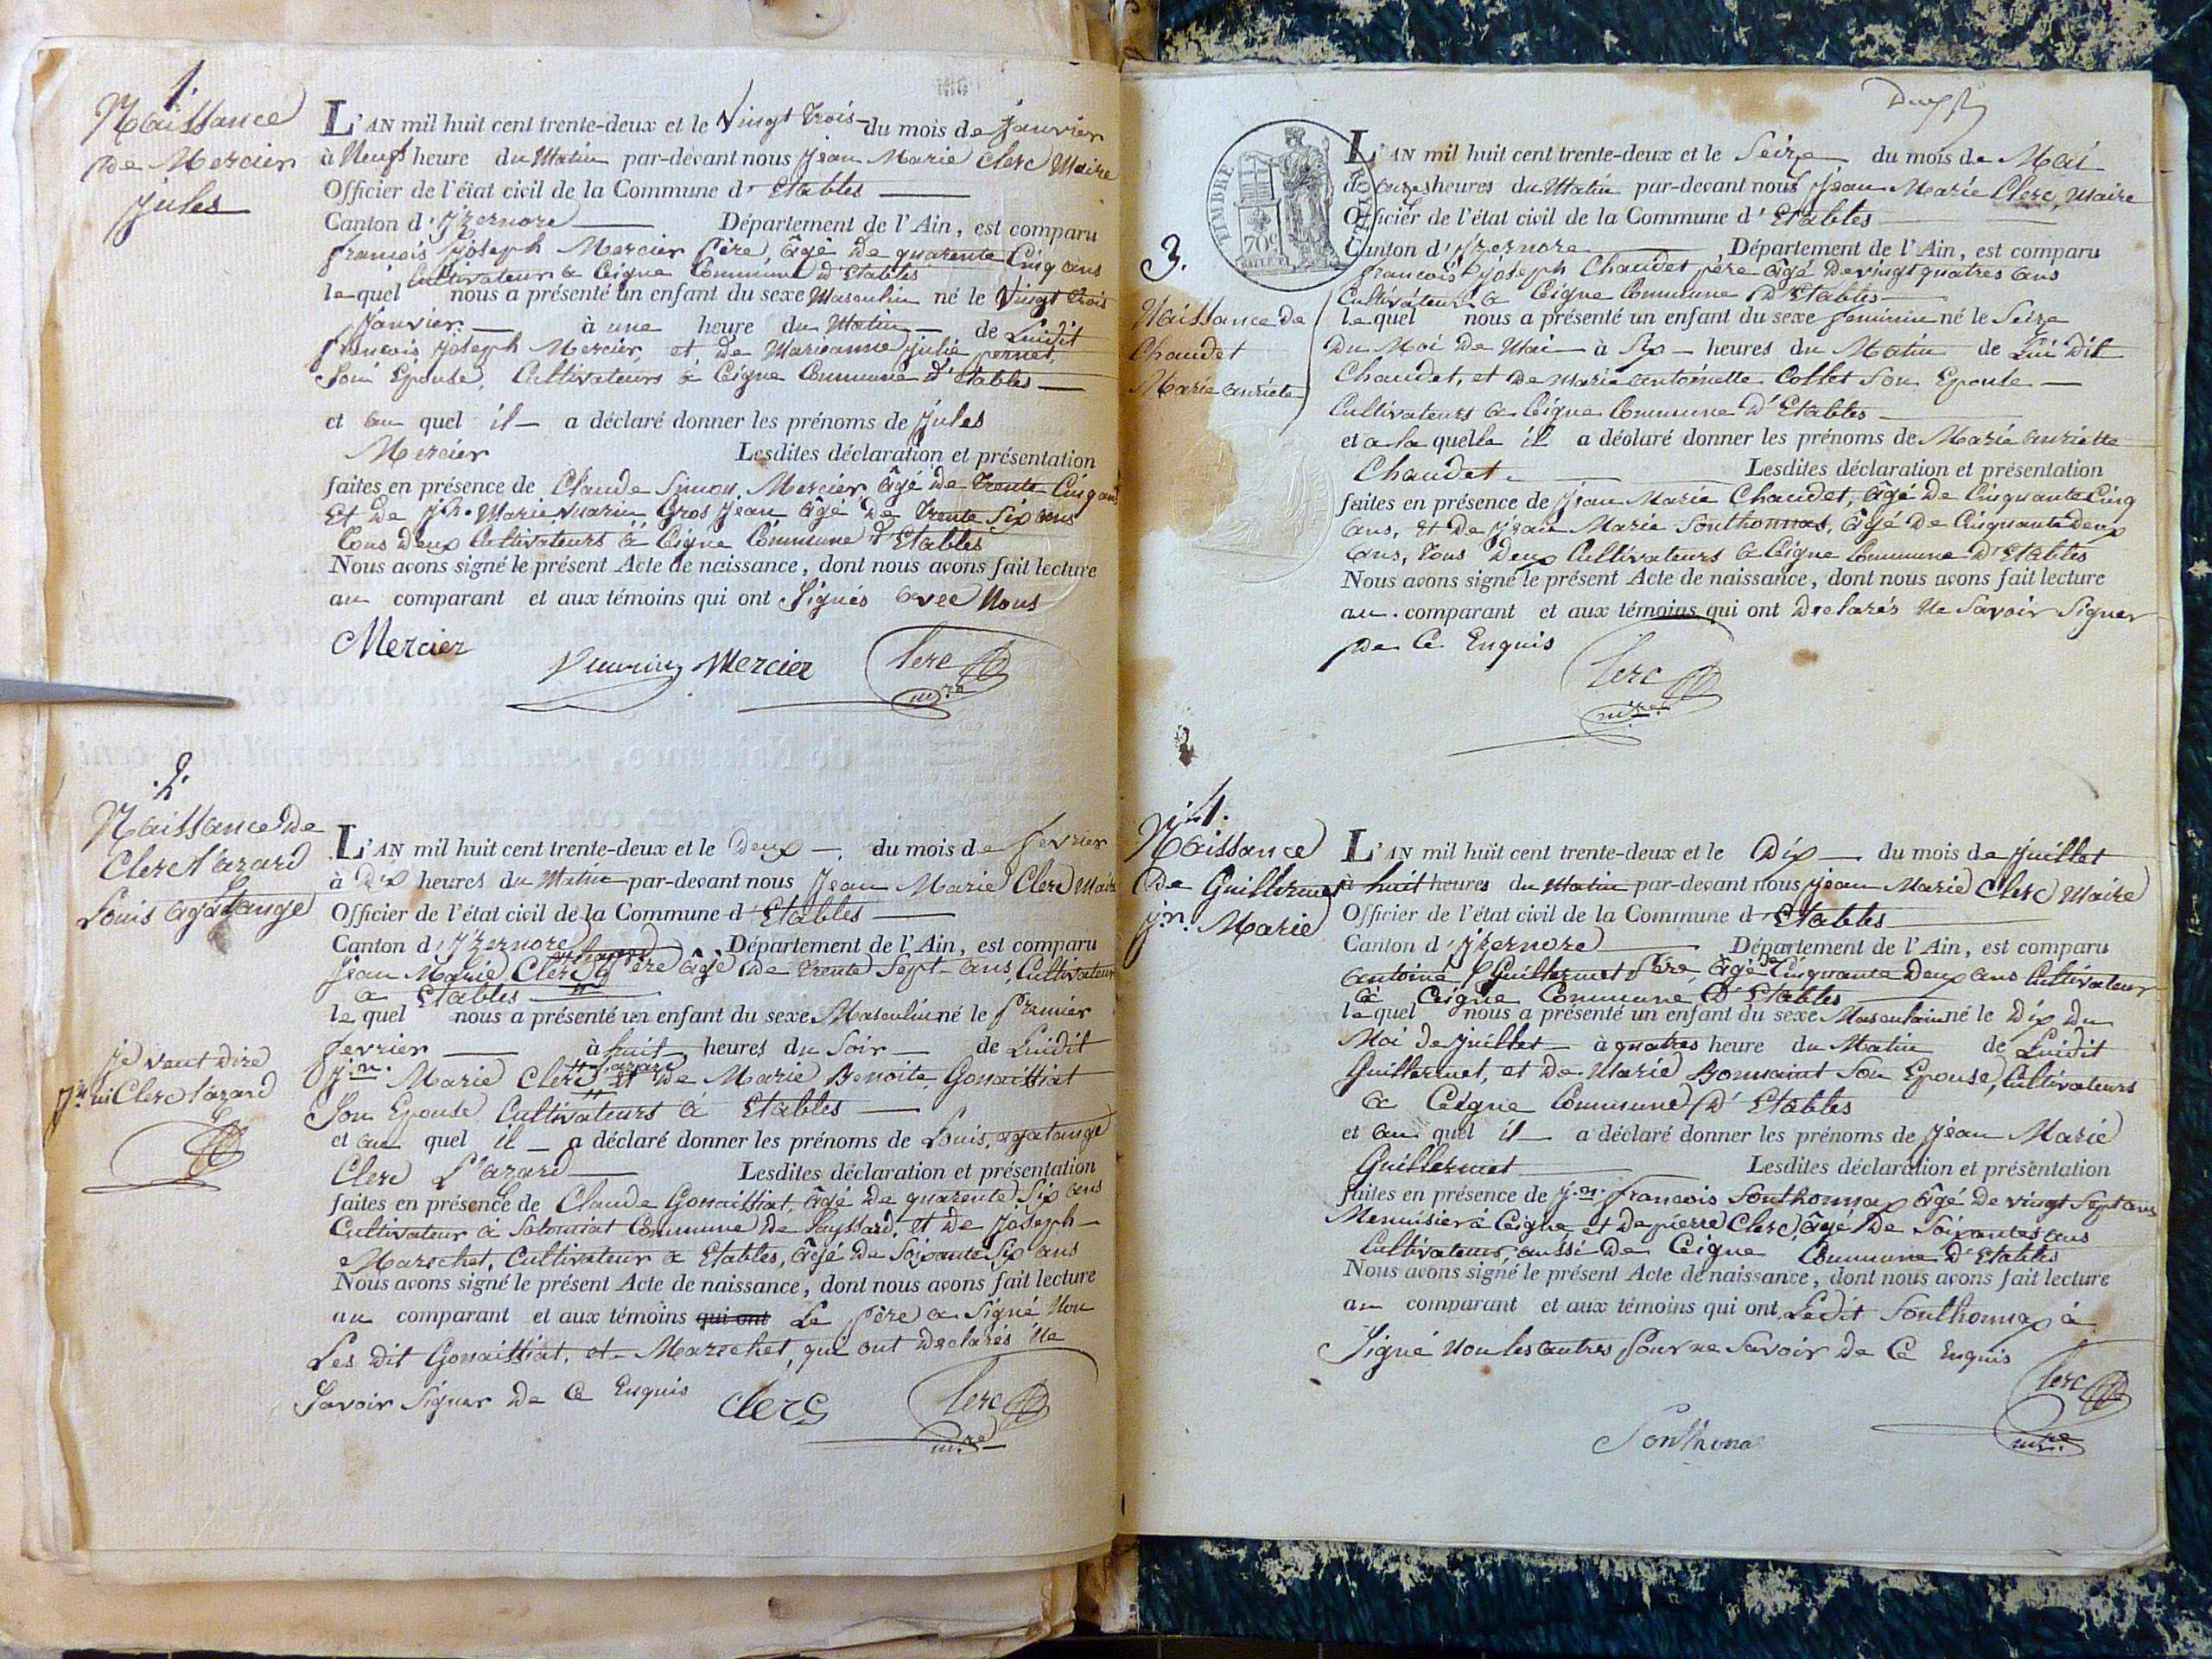 1.
Naissance
de Mercier
Jules
L'AN mil huit cent trente-deux et le Vingt trois du mois de Janvier
à Neufs heure du Matin par-devant nous Jean Marie Clerc Maire
Officier de l'état civil de la Commune d'Etables
Canton d'Izernore Département de l'Ain, est comparu
françois Joseph Mercier Père, âgé de quarente Cinq ans
Cultivateur à Ceigne Commune d'Etables
lequel nous a présenté un enfant du sexe Masculin né le Vingt trois
Janvier à une heure du Matin de Luidit
françois Joseph Mercier, et de Marieanne Julie pernet,
Son Epouse, Cultivateurs à Ceigne Commune d'Etables
et au quel il a déclaré donner les prénoms de Jules
Mercier Lesdites déclaration et présentation
faites en présence de Claude Simon Mercier, âgé de trente Cinq ans
Et de Jn. Marie Gros Jean âgé de trente Six ans
tous deux Cultivateurs à Ceigne Commune d'Etables
Nous avons signé le présent Acte de naissance, dont nous avons fait lecture
au comparant et aux témoins qui ont Signés avec Nous
Mercier
Mercier Clerc
mre
2.
Naissance de
Clerc l'azard
Louis agatange
L'AN mil huit cent trente-deux et le Deux du mois de fevrier
à Dix heures du Matin par-devant nous Jean Marie Clerc Maire
Officier de l'état civil de la Commune d'Etables
Canton d'Izernore Département de l'Ain, est comparu
Jean Marie Clerc Père âgé de trente Sept ans, Cultivateur
à Etables
lequel nous a présenté un enfant du sexe Masculin né le Premier
fevrier à huit heures du Soir de Luidit
Jn. Marie Clerc l'azard et de Marie Benoite Gonaittiat
Son Epouse Cultivateurs à Etables
et au quel il a déclaré donner les prénoms de Louis, agatange
Clerc L'azard Lesdites déclaration et présentation
faites en présence de Claude Gonaittiat, âgé de quarente Six ans
Cultivateur à Solomiat Commune de Leyssard, et de Joseph
Marechet, Cultivateur à Etables, âgé de Soixante Six ans
Nous avons signé le présent Acte de naissance, dont nous avons fait lecture
au comparant et aux témoins qui ont Le Père a Signé Non
Les dit Gonaittiat, et Marechet, qui ont Declarés Ne
Savoir Signer de Ce Enquis
Clerc Clerc
mre
je veut dire
Jn mi Clerc l'azard
3.
Naissance de
Chaudet
Marie anriete
TIMBRE ROYAL
70c
L'AN mil huit cent trente-deux et le Seize du mois de Mai
à onzes heures du Matin par-devant nous Jean Marie Clerc, Maire
Officier de l'état civil de la Commune d'Etables
Canton d'Izernore Département de l'Ain, est comparu
françois Joseph Chaudet père âgé de vingt quatres ans
Cultivateur à Ceigne Commune d'Etables
lequel nous a présenté un enfant du sexe feminin né le Seize
Du Moi de Mai à Six heures du Matin de Lui Dit
Chaudet, et de Marie antoinette Collet Son Epouse
Cultivateurs à Ceigne Commune D'Etables
et a la quelle il a déclaré donner les prénoms de Marie anriette
Chaudet. Lesdites déclaration et présentation
faites en présence de Jean Marie Chaudet, âgé de Cinquante Cinq
ans, et de Jean Marie Sonthonnas, âgé de Cinquante deux
ans, tous Deux Cultivateurs à Ceigne Commune D'Etables
Nous avons signé le présent Acte de naissance, dont nous avons fait lecture
au comparant et aux témoins qui ont Declarés Ne Savoir Signer
de Ce Enquis
Clerc
mre
4.
Naissance
De Guillermet
Jn. Marie
L'AN mil huit cent trente-deux et le Dix du mois de Juillet
à huit heures du Matin par-devant nous Jean Marie Clerc Maire
Officier de l'état civil de la Commune d'Etables
Canton d'Izernore Département de l'Ain, est comparu
antoine Guillermet Père, âgé de Cinquante Deux ans Cultivateur
à Ceigne Commune D'Etables
lequel nous a présenté un enfant du sexe Masculain né le Dix du
Moi de Juillet à quatres heure du Matin de Luidit
Guillermet, et de Marie Bonnaint Son Epouse, Cultivateurs
à Ceigne Commune D'Etables
et au quel il a déclaré donner les prénoms de Jean Marie
Guillermet Lesdites déclaration et présentation
faites en présence de Jn. françois Sonthonnax âgé de vingt Sept ans
Menuisier à Ceigne, et de pierre Clerc, âgé De Soixantes ans
Cultivateurs, aussi de Ceigne Commune D'Etables
Nous avons signé le présent Acte de naissance, dont nous avons fait lecture
au comparant et aux témoins qui ont Ledit Sonthonnax à
Signé Non les autres Pour ne Savoir de Ce Enquis
Clerc
mre
Sonthona